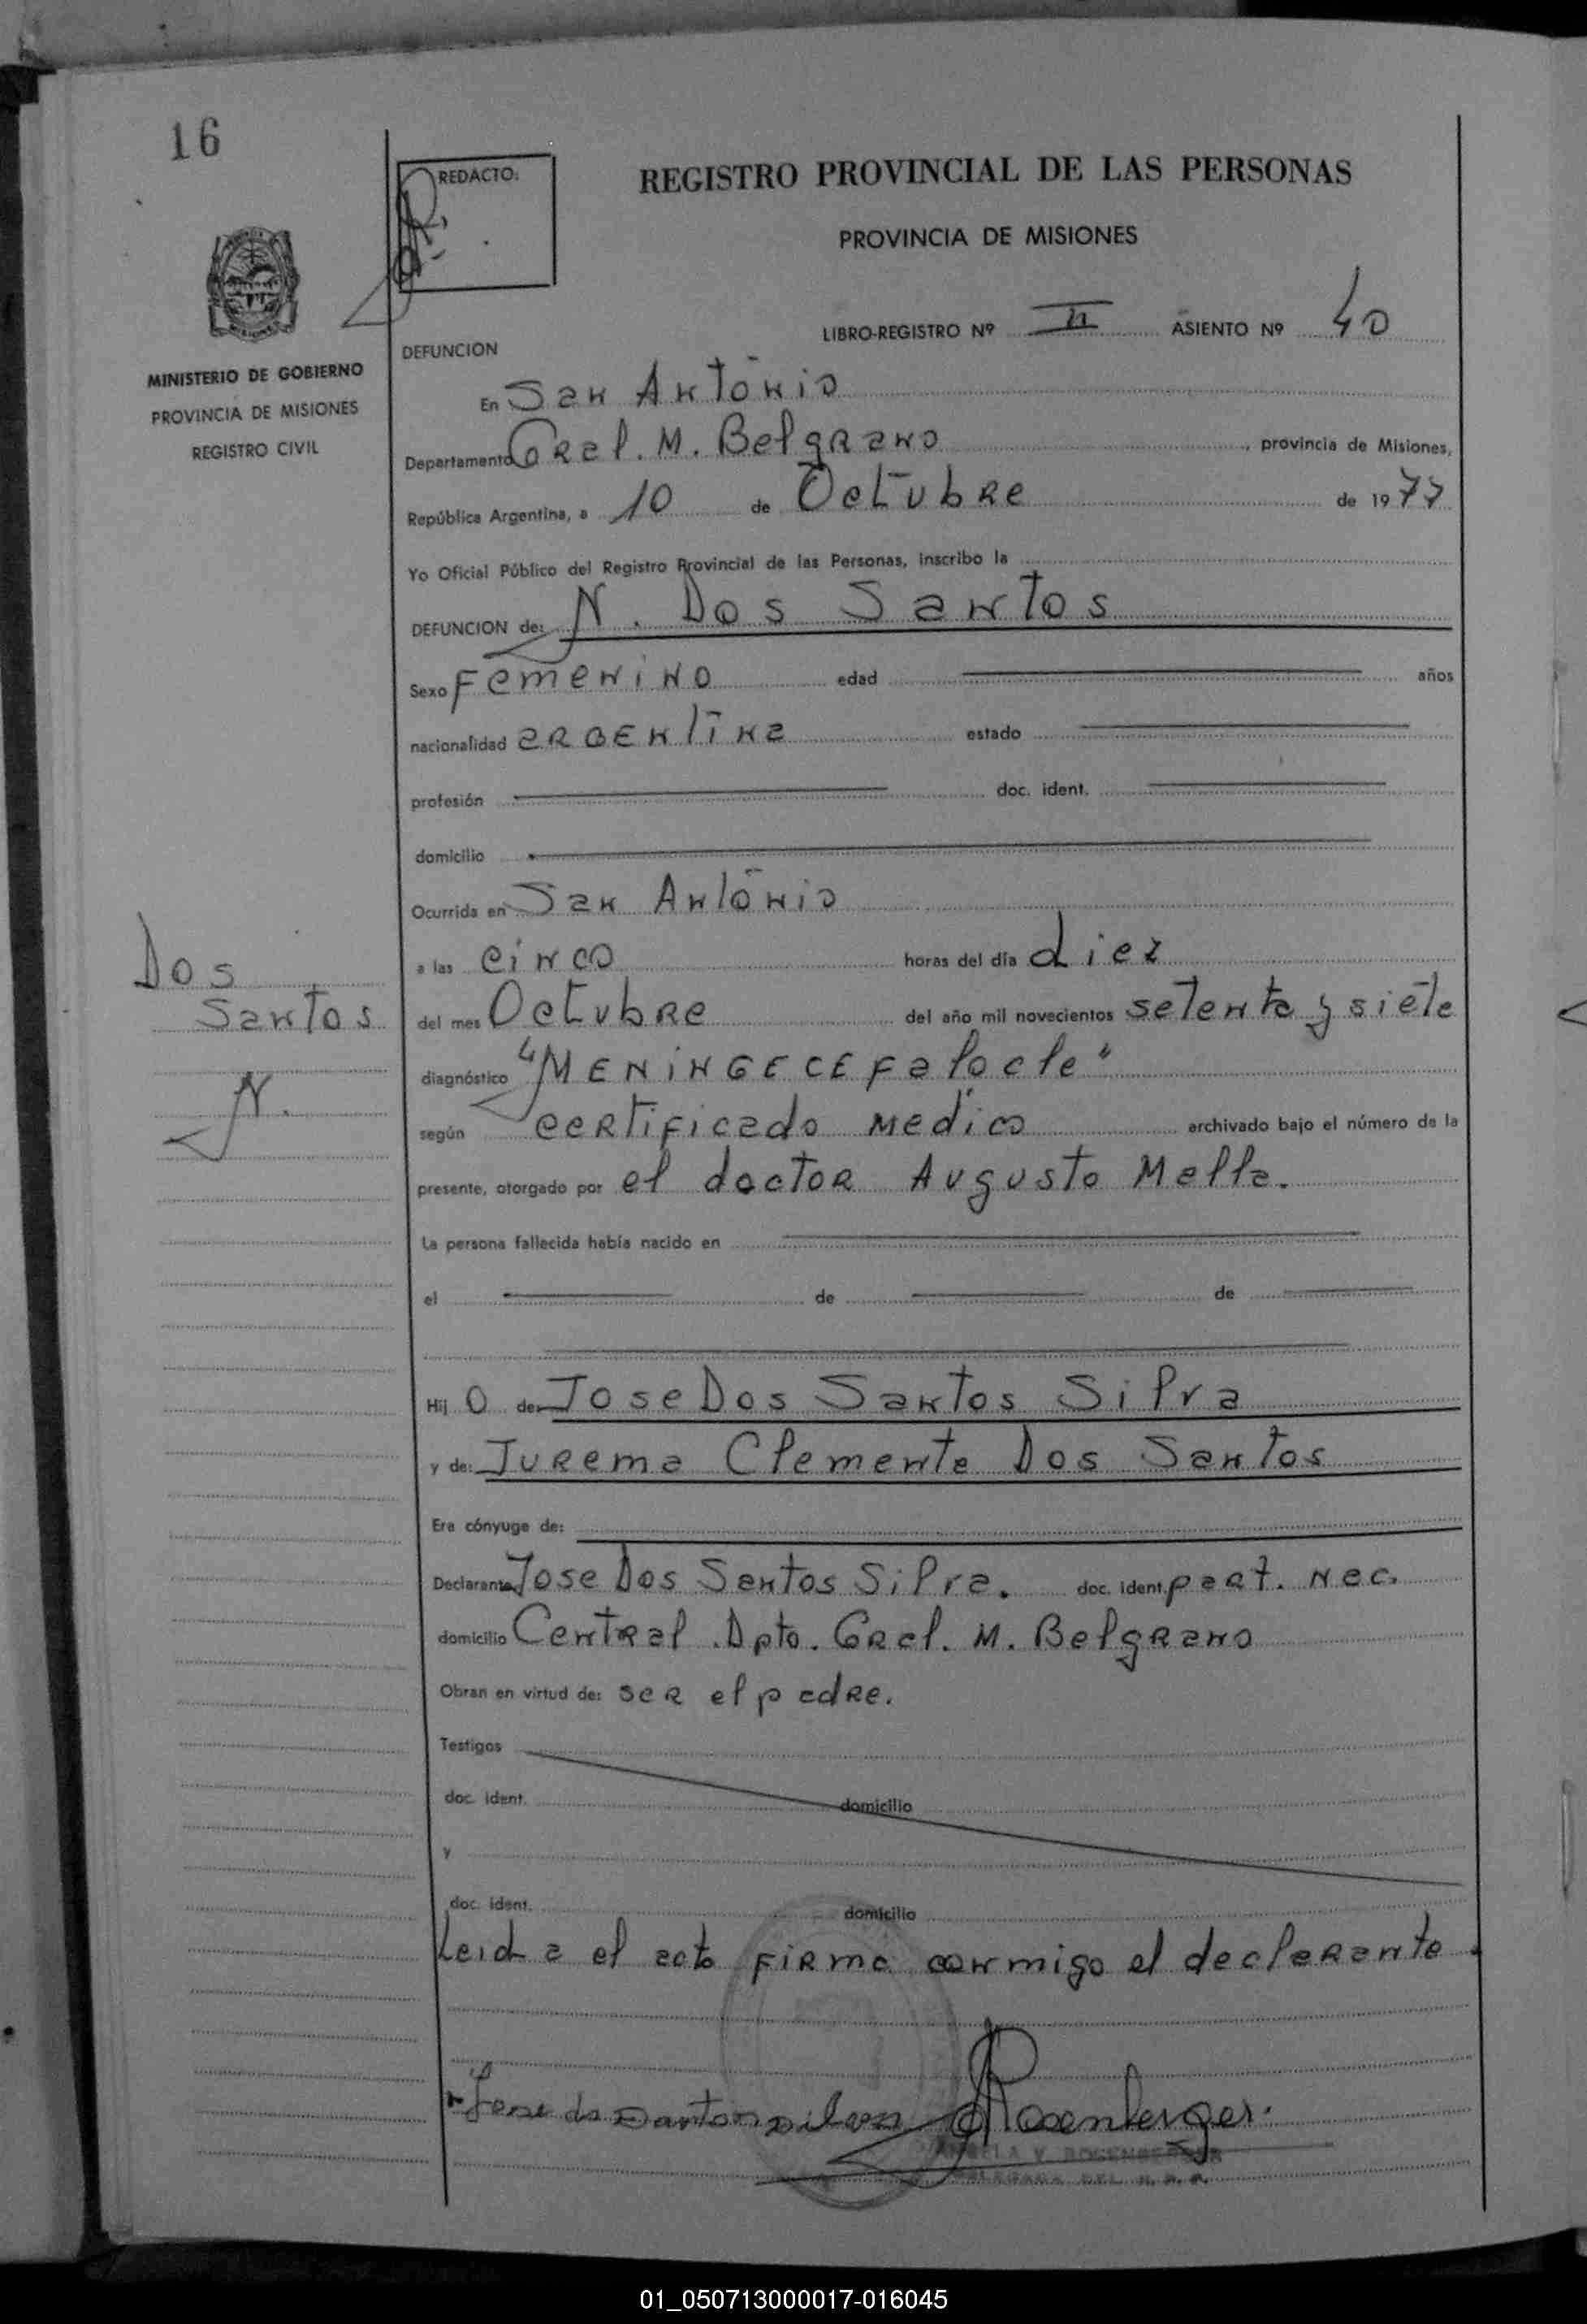 16
REDACTO:
REGISTRO PROVINCIAL DE LAS PERSONAS
PROVINCIA DE MISIONES
LIBRO-REGISTRO Nº II ASIENTO Nº 40
DEFUNCION
MINISTERIO DE GOBIERNO
PROVINCIA DE MISIONES
REGISTRO CIVIL
En San Antonio
Departamento Gral. M. Belgrano, provincia de Misiones,
República Argentina, a 10 de Octubre de 1977
Yo Oficial Público del Registro Provincial de las Personas, inscribo la
DEFUNCION de: N. Dos Santos
Sexo Femenino edad años
nacionalidad argentina estado
profesión doc. ident.
domicilio
Ocurrida en San Antonio
Dos
Santos
N.
a las cinco horas del día diez
del mes Octubre del año mil novecientos setenta y siete
diagnóstico "MENINGECEFalocle"
según certificado medico archivado bajo el número de la
presente, otorgado por el doctor Augusto Mella.
La persona fallecida había nacido en
el de de
Hij O de: Jose Dos Santos Silva
y de: Jurema Clemente Dos Santos
Era cónyuge de:
Declarante Jose Dos Santos Silva. doc. ident. part. Nac.
domicilio Central Dpto. Gral. M. Belgrano
Obran en virtud de: ser el padre.
Testigos
doc. ident. domicilio
y
doc. ident. domicilio
Leida el acto firma conmigo el declarante.
Jose do Santos silva Rosenberger.
DELEGADA DEL R. P. P.
01_050713000017-016045